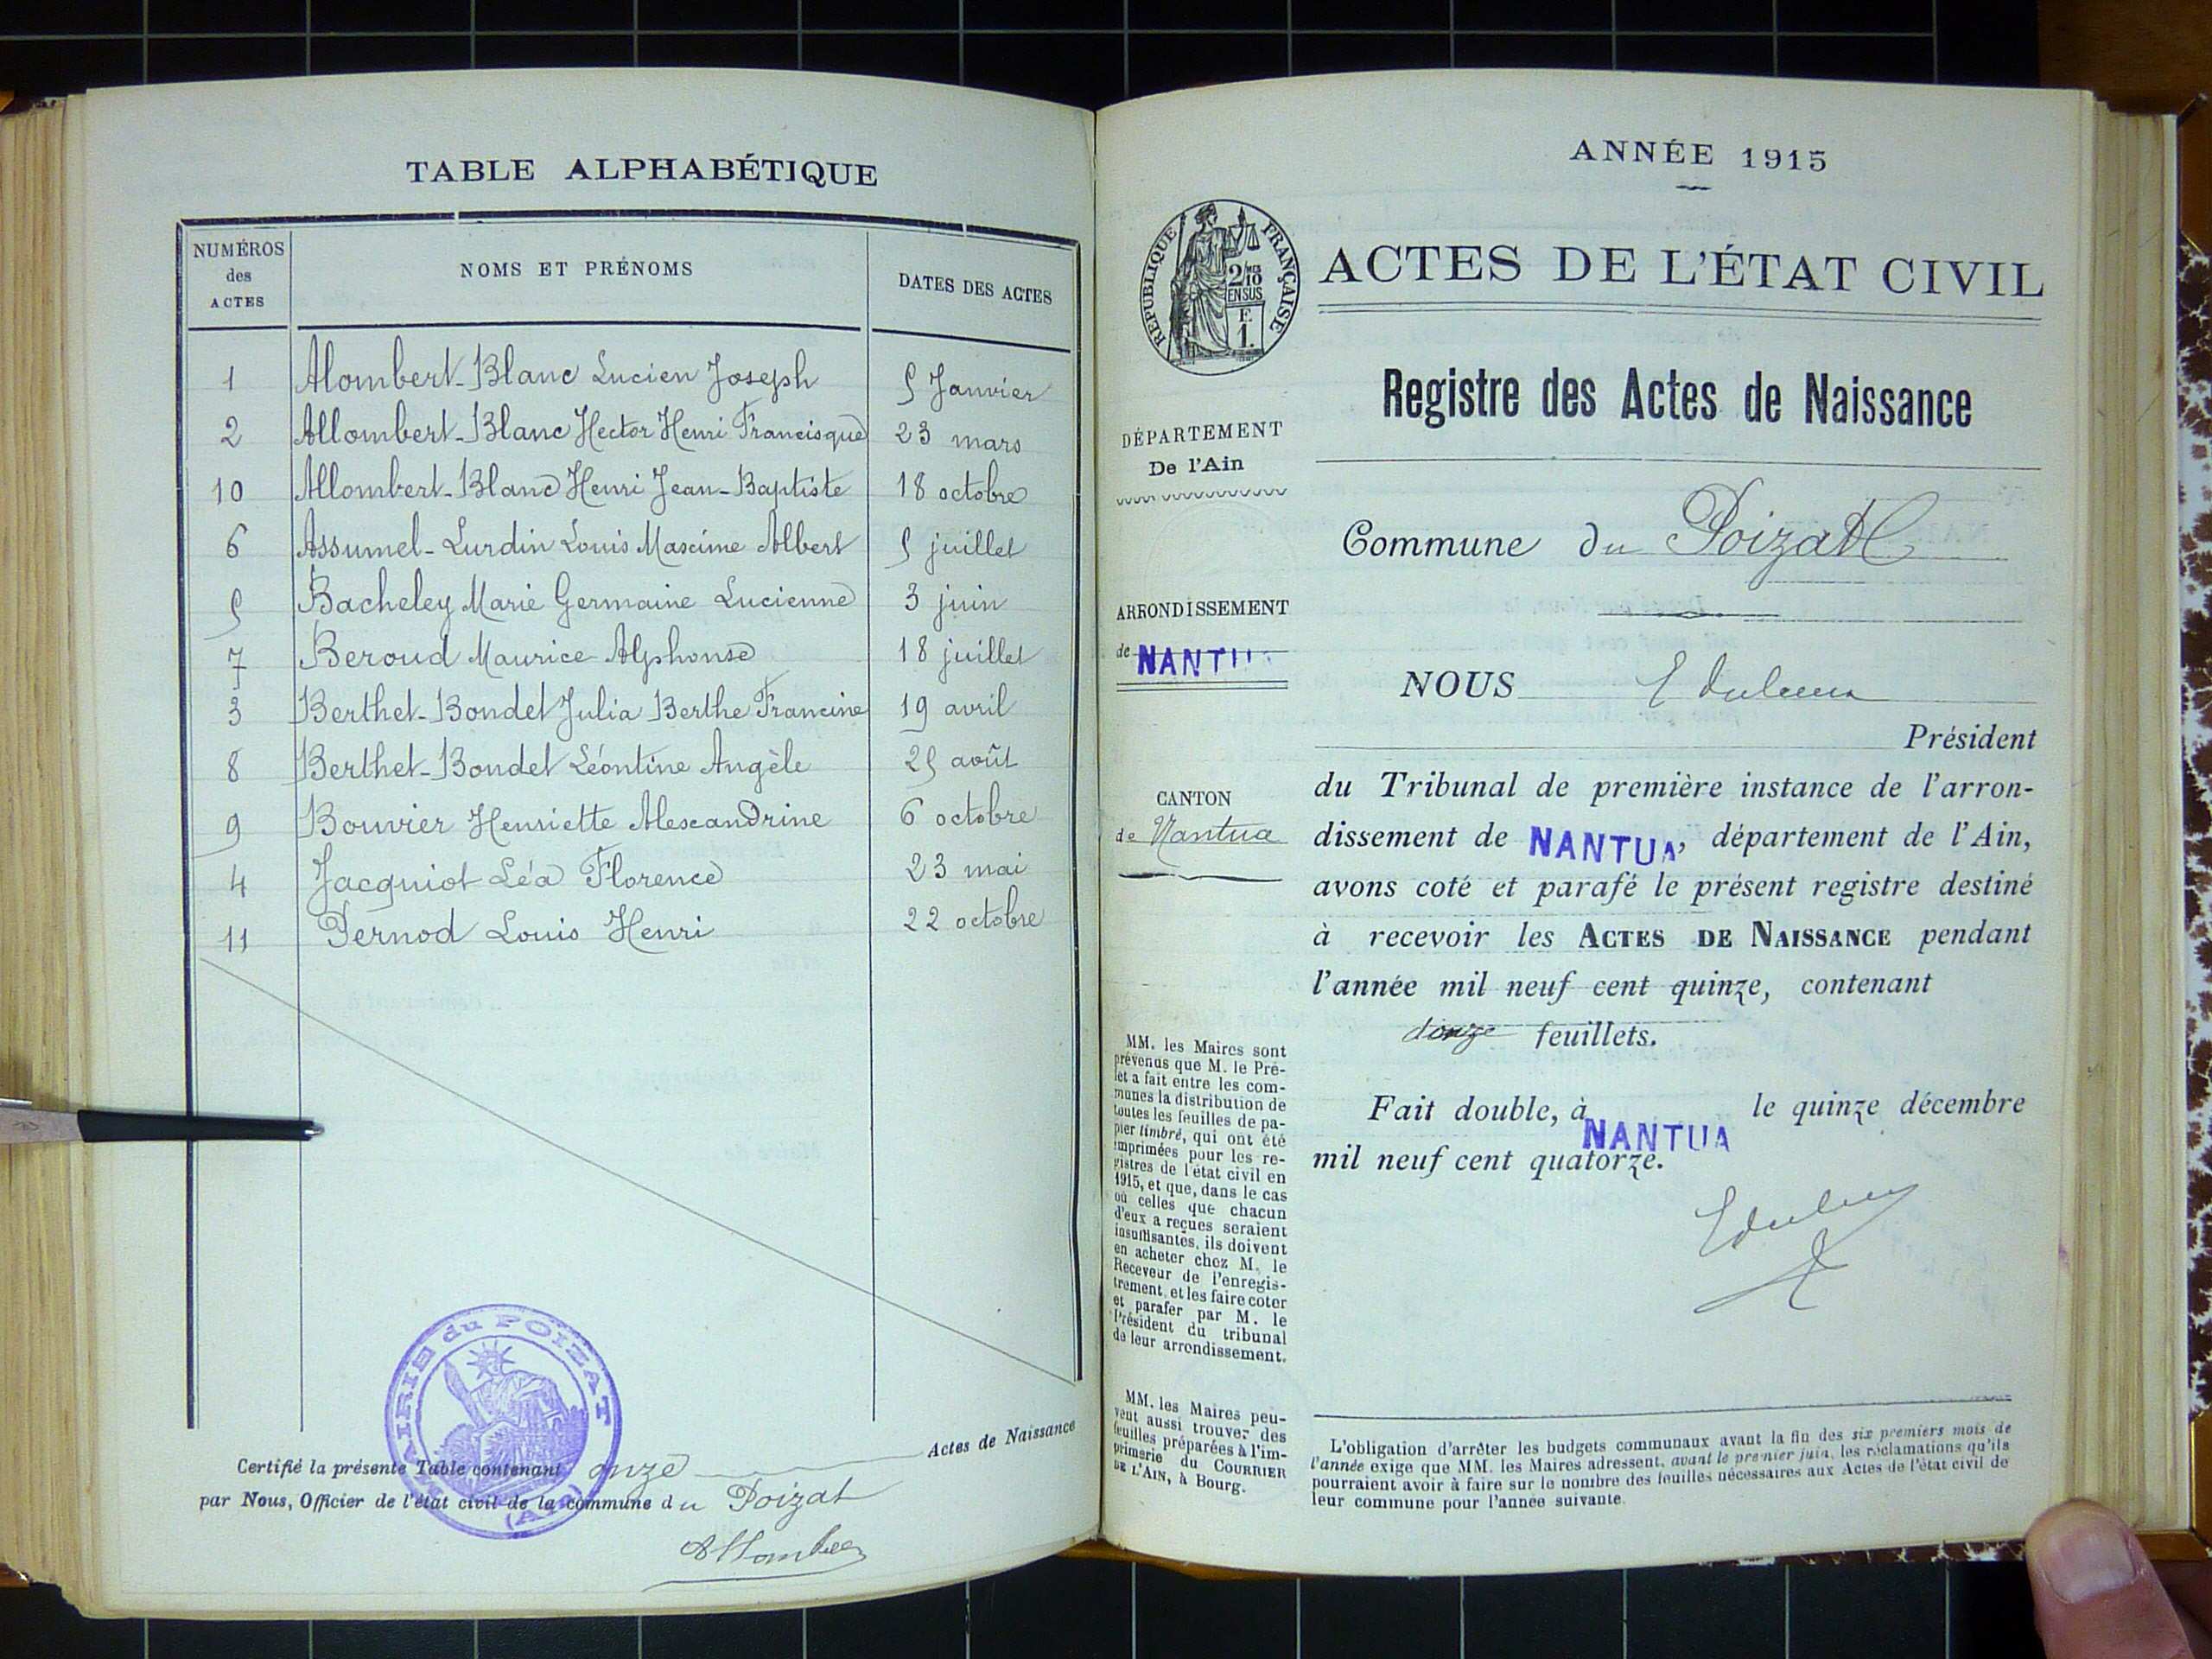 TABLE ALPHABÉTIQUE
NUMÉROS des ACTES
NOMS ET PRÉNOMS
DATES DES ACTES
1 Alombert-Blanc Lucien Joseph 5 Janvier
2 Allombert-Blanc Hector Henri Francisque 23 mars
10 Allombert-Blanc Henri Jean-Baptiste 18 octobre
6 Assumel-Lurdin Louis Maxime Albert 5 juillet
5 Bacheley Marie Germaine Lucienne 3 juin
7 Beroud Maurice Alphonse 18 juillet
3 Berthet-Bondet Julia Berthe Francine 19 avril
8 Berthet-Bondet Léontine Angèle 25 août
9 Bouvier Henriette Alexandrine 6 octobre
4 Jacquiot Léa Florence 23 mai
11 Pernod Louis Henri 22 octobre
MAIRIE du POIZAT
(AIN)
Certifié la présente Table contenant onze Actes de Naissance
par Nous, Officier de l'état civil de la commune du Poizat
ANNÉE 1915
RÉPUBLIQUE FRANÇAISE
2/10 EN SUS
F. 1.
ACTES DE L'ÉTAT CIVIL
Registre des Actes de Naissance
DÉPARTEMENT
De l'Ain
ARRONDISSEMENT
de NANTUA
CANTON
de Nantua
MM. les Maires sont
prévenus que M. le Pré-
fet a fait entre les com-
munes la distribution de
toutes les feuilles de pa-
pier timbré, qui ont été
imprimées pour les re-
gistres de l'état civil en
1915, et que, dans le cas
où celles que chacun
d'eux a reçues seraient
insuffisantes, ils doivent
en acheter chez M. le
Receveur de l'enregis-
trement, et les faire coter
et parafer par M. le
Président du tribunal
de leur arrondissement.
MM. les Maires peu-
vent aussi trouver des
feuilles préparées à l'im-
primerie du COURRIER
DE L'AIN, à Bourg.
Commune du Poizat
NOUS
Président
du Tribunal de première instance de l'arron-
dissement de NANTUA, département de l'Ain,
avons coté et parafé le présent registre destiné
à recevoir les ACTES DE NAISSANCE pendant
l'année mil neuf cent quinze, contenant
feuillets.
Fait double, à NANTUA le quinze décembre
mil neuf cent quatorze.
L'obligation d'arrêter les budgets communaux avant la fin des six premiers mois de
l'année exige que MM. les Maires adressent, avant le premier juin, les réclamations qu'ils
pourraient avoir à faire sur le nombre des feuilles nécessaires aux Actes de l'état civil de
leur commune pour l'année suivante.